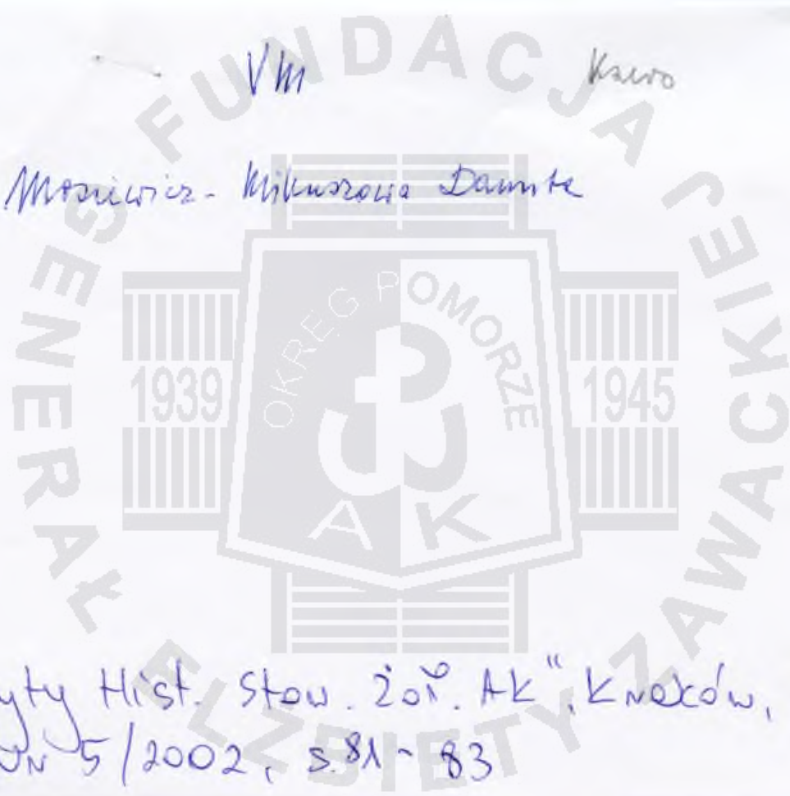 VM
Mosiewicz - Mikuszowa Danuta
FUNDACJA GENERAŁ ELŻBIETY ZAWACKIEJ
OKRĘG POMORZE
1939
1945
AK
yty Hist. Stow. Żoł. AK", Kraków,
5/2002, s. 81 - 83